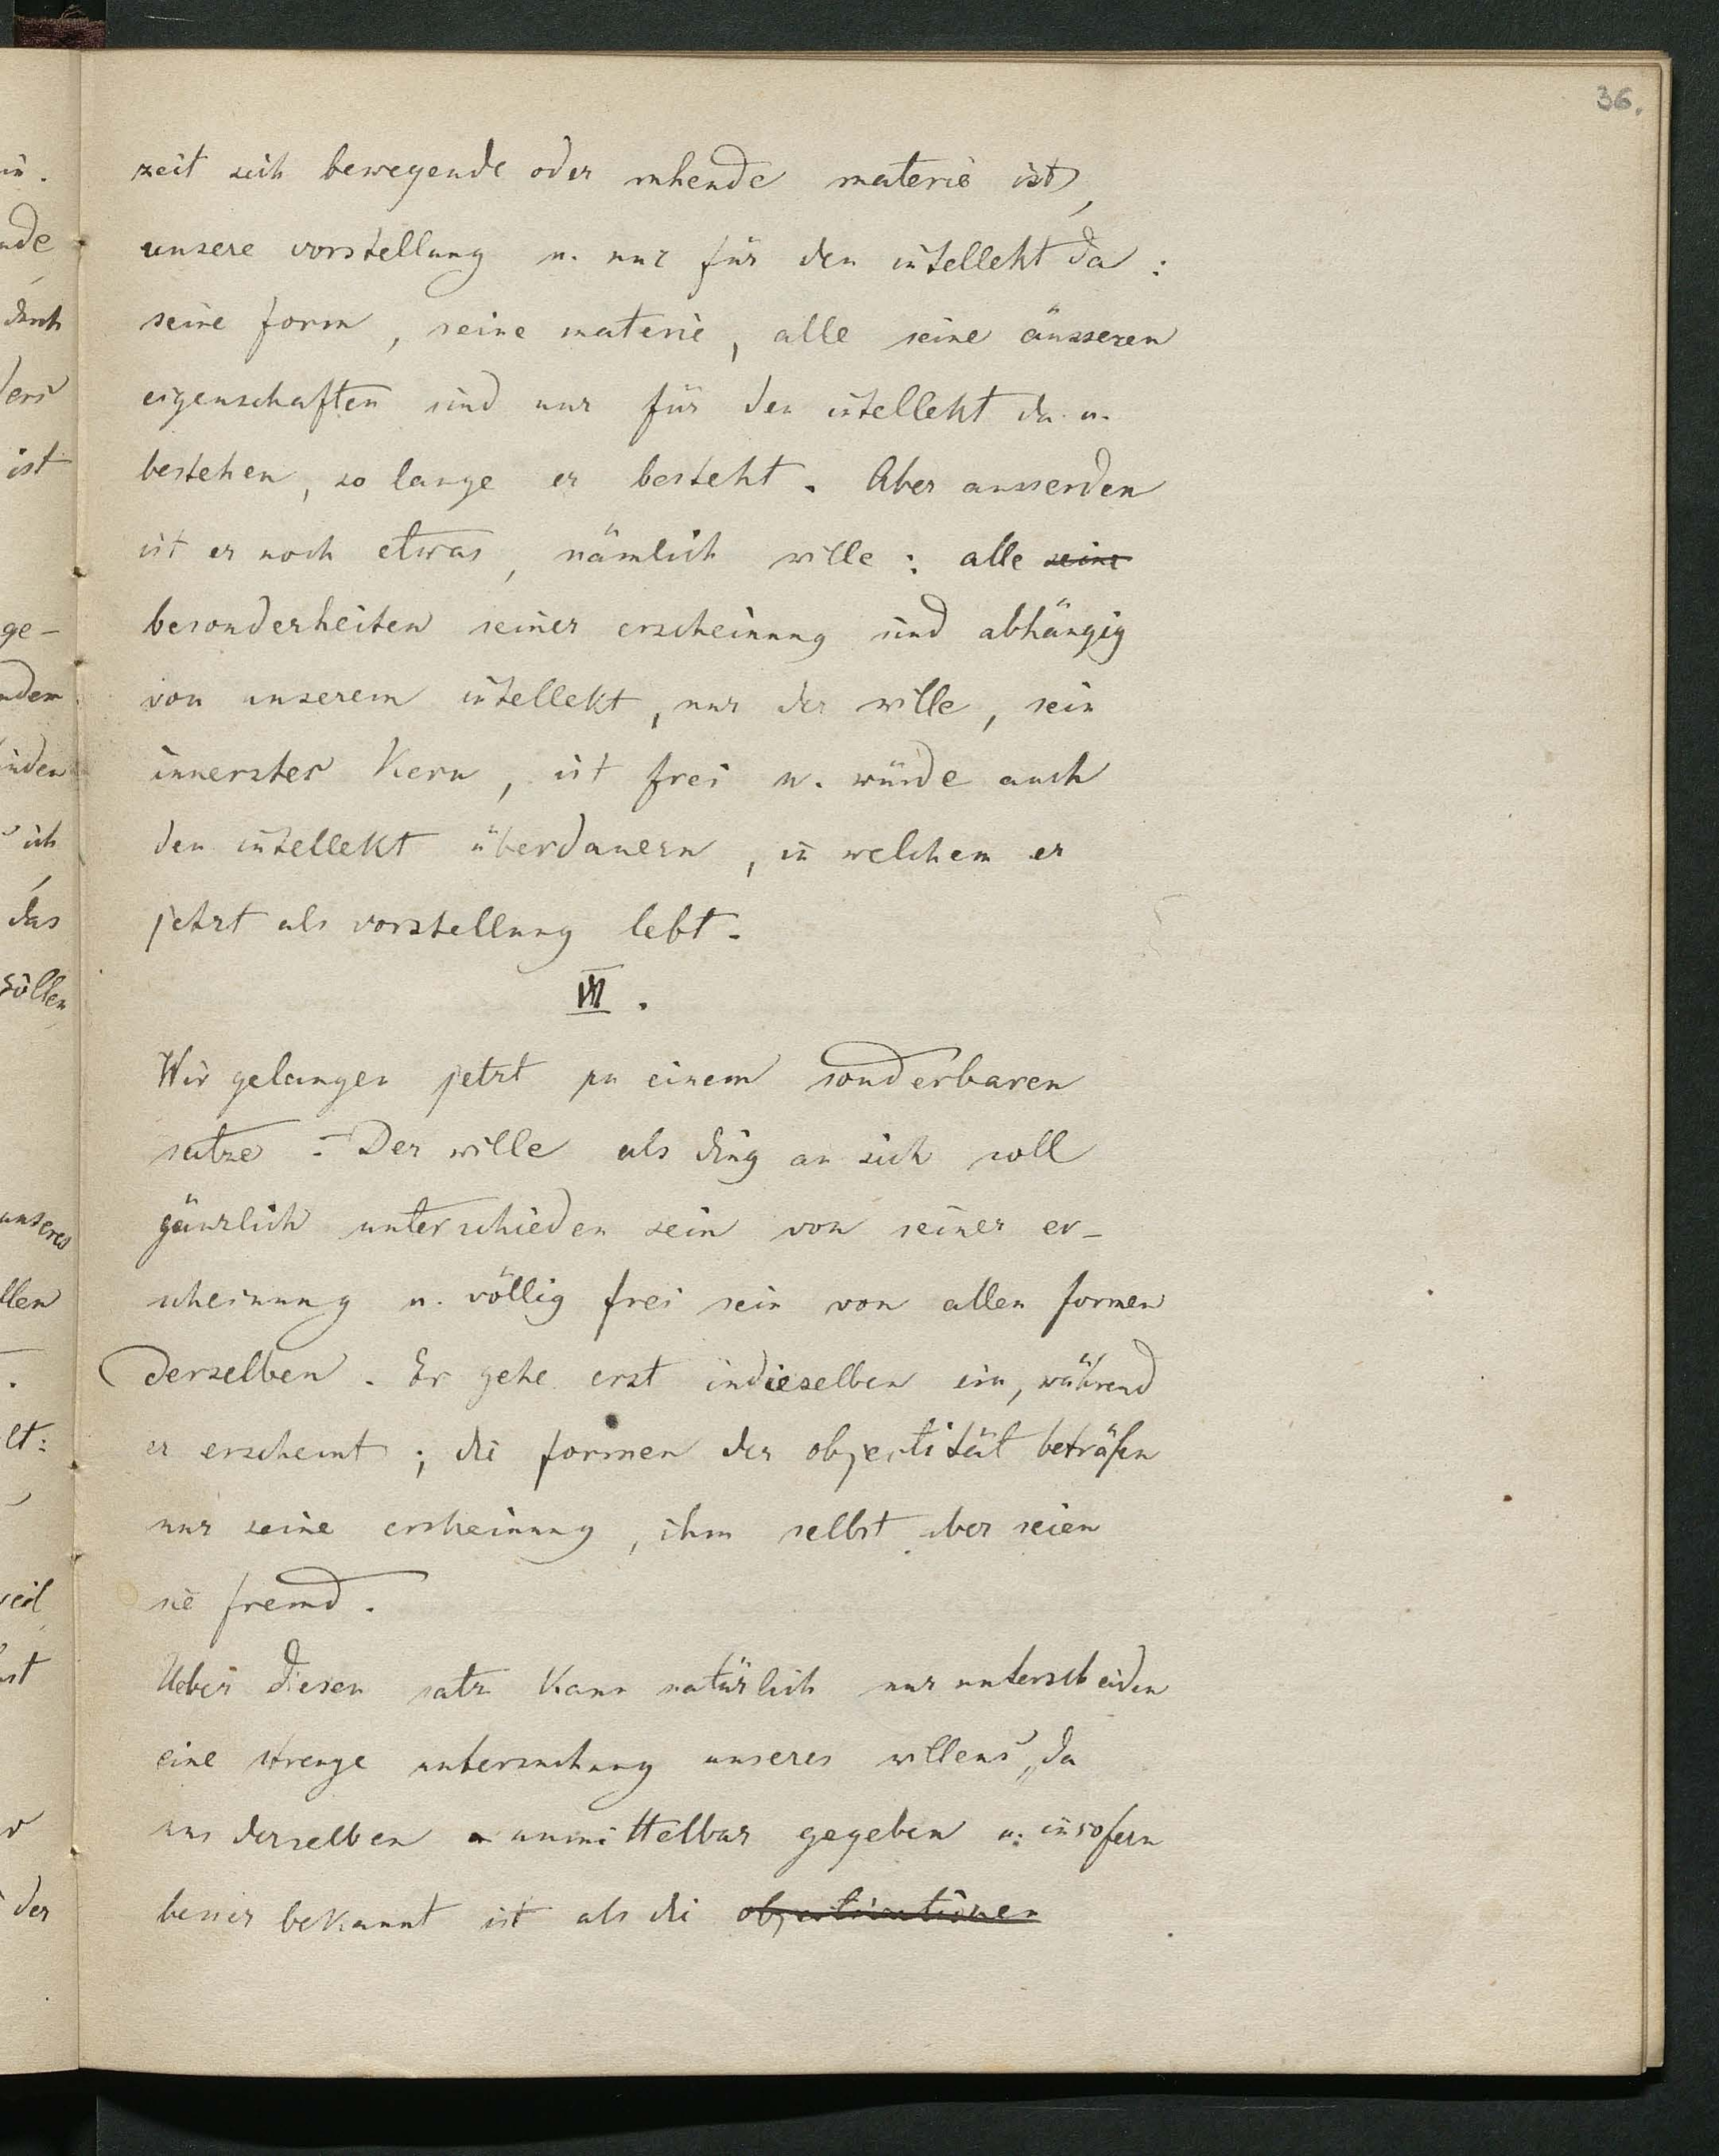 36.
zeit sich bewegende oder ruhende materie ist,
unsere vorstellung u. nur für den intellekt da:
seine form, seine materie, alle seine äusseren
eigenschaften sind nur für den intellekt da u.
bestehen, so lange er besteht. Aber ausserdem
ist er noch etwas, nämlich wille: alle seine
besonderheiten seiner erscheinung sind abhängig
von unserem intellekt, nur der wille, sein
innerster Kern, ist frei u. würde auch
den intellekt überdauern, in welchem er
jetzt als vorstellung lebt.
VII.
Wir gelangen jetzt zu einem sonderbaren
satze: Der wille als ding an sich soll
gänzlich unterschieden sein von seiner er-
scheinung u. völlig frei sein von allen formen
derselben. Er gehe erst in dieselben ein, während
er erscheint; die formen der objectität beträfen
nur seine erscheinung, ihm selbst aber seien
sie fremd.
Ueber diesen satz kann natürlich nur unterscheiden
eine strenge untersuchung unseres willens, da
uns derselben unmittelbar gegeben u. insofern
besser bekannt ist als die objectivationen